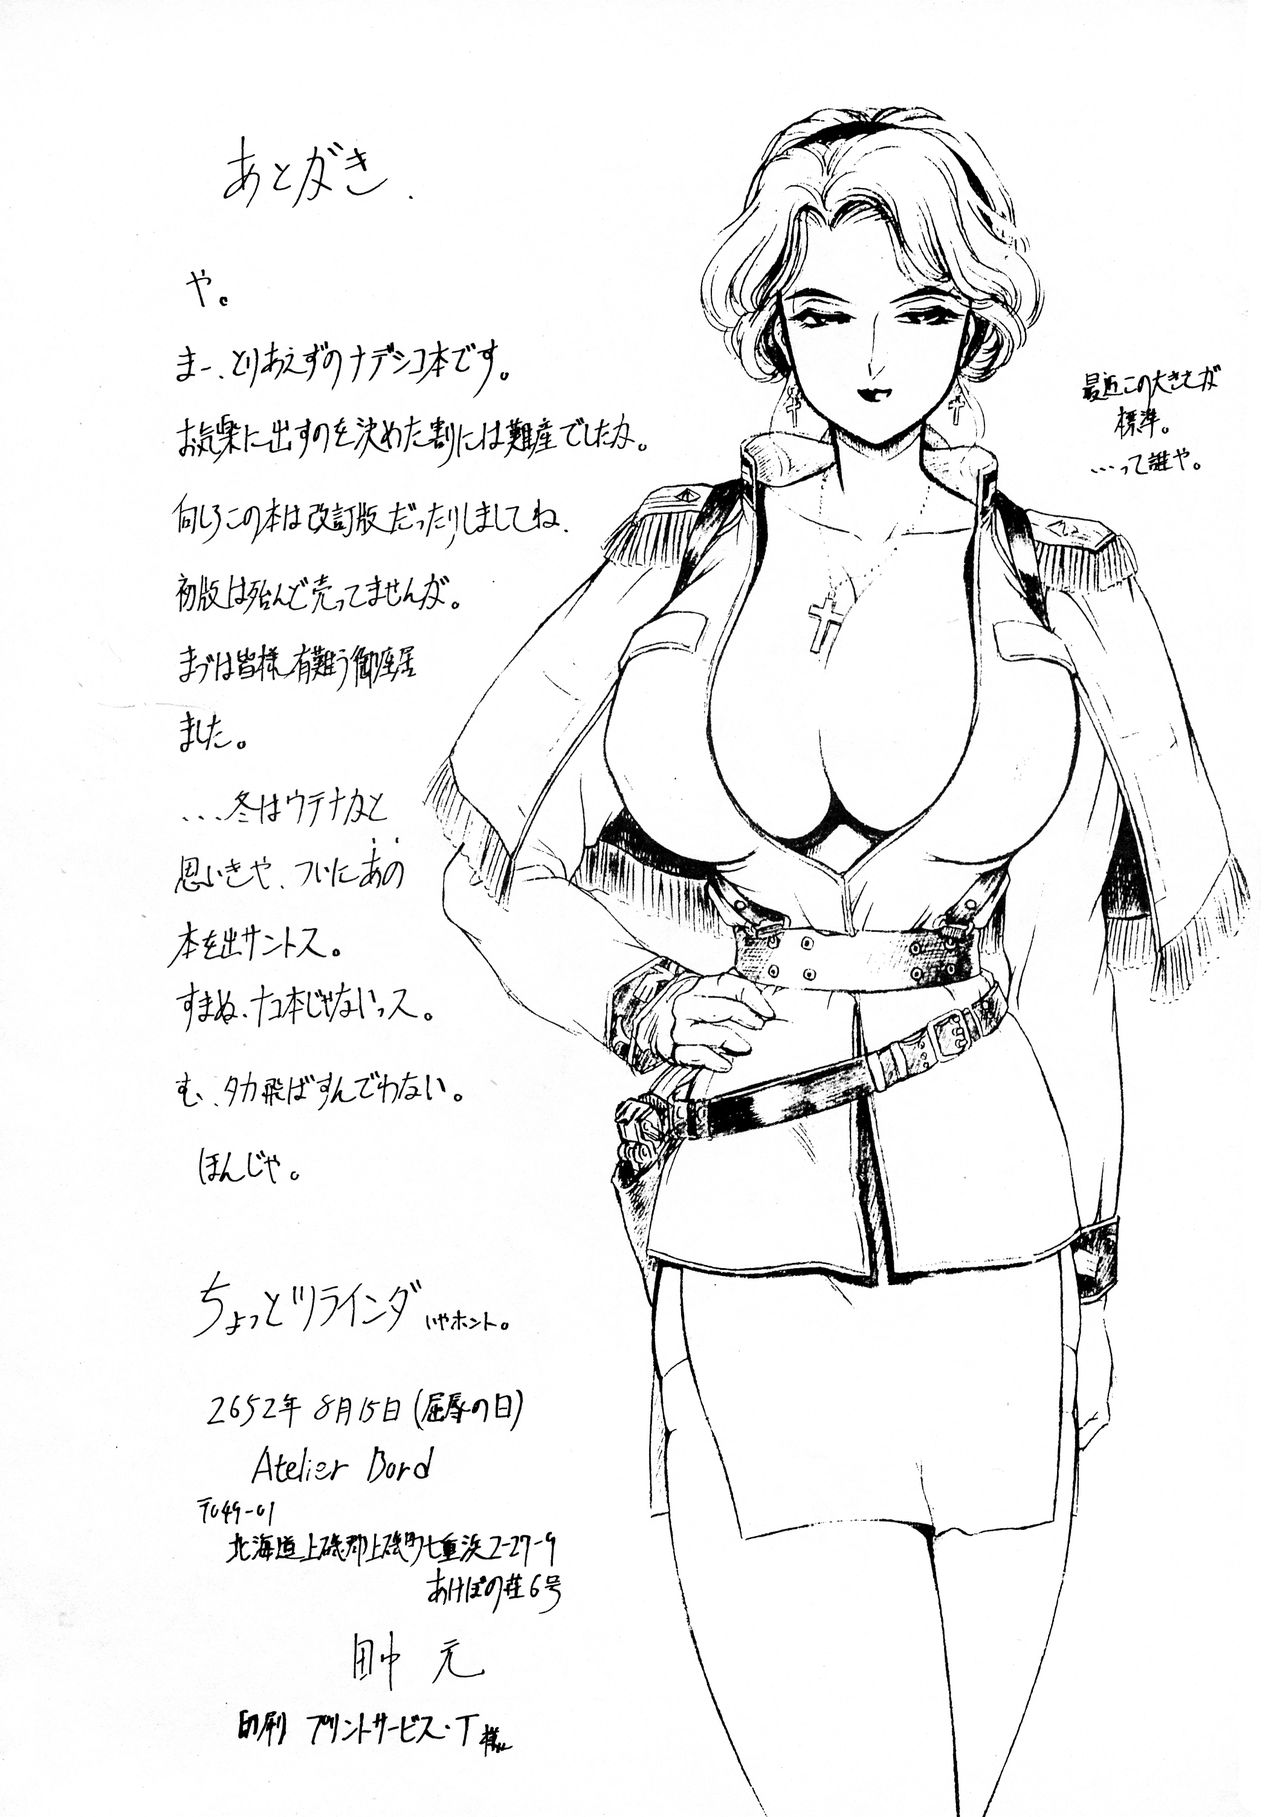 あとがき.
や。
まー、とりあえずのナデシコ本です。
お気楽に出すのを決めた割には難産でしたが。
何しろこの本は改訂版だったりしましてね、
初版は殆んど売ってませんが。
まづは皆様有難う御座居
ました。
...冬はウテナかと
思いきや、ついにあの
本を出サントス。
すまぬ、ナコ本じゃないっス。
む、タカ飛ばすんでわない。
ほんじゃ。
ちょっとツラインダ いやホント。
2652年 8月15日(屈辱の日)
Atelier Bord
〒049-01
北海道上磯郡上磯町七重浜2-27-9
あけぼの荘6号
田中 元
印刷 プリントサービス・T様
最近この大きさが
標準。
...って誰や。